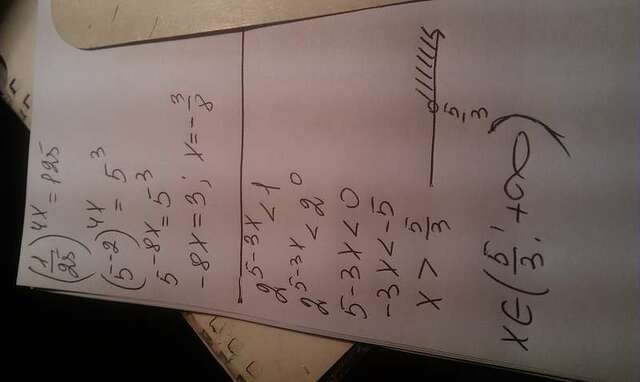 (1/25)^4x = 125
(5^-2)^4x = 5^3
5^-8x = 5^3
-8x = 3; x = -3/8
2^5-3x < 1
2^5-3x < 2^0
5-3x < 0
-3x < -5
x > 5/3
5/3
x ∈ (5/3; +∞)